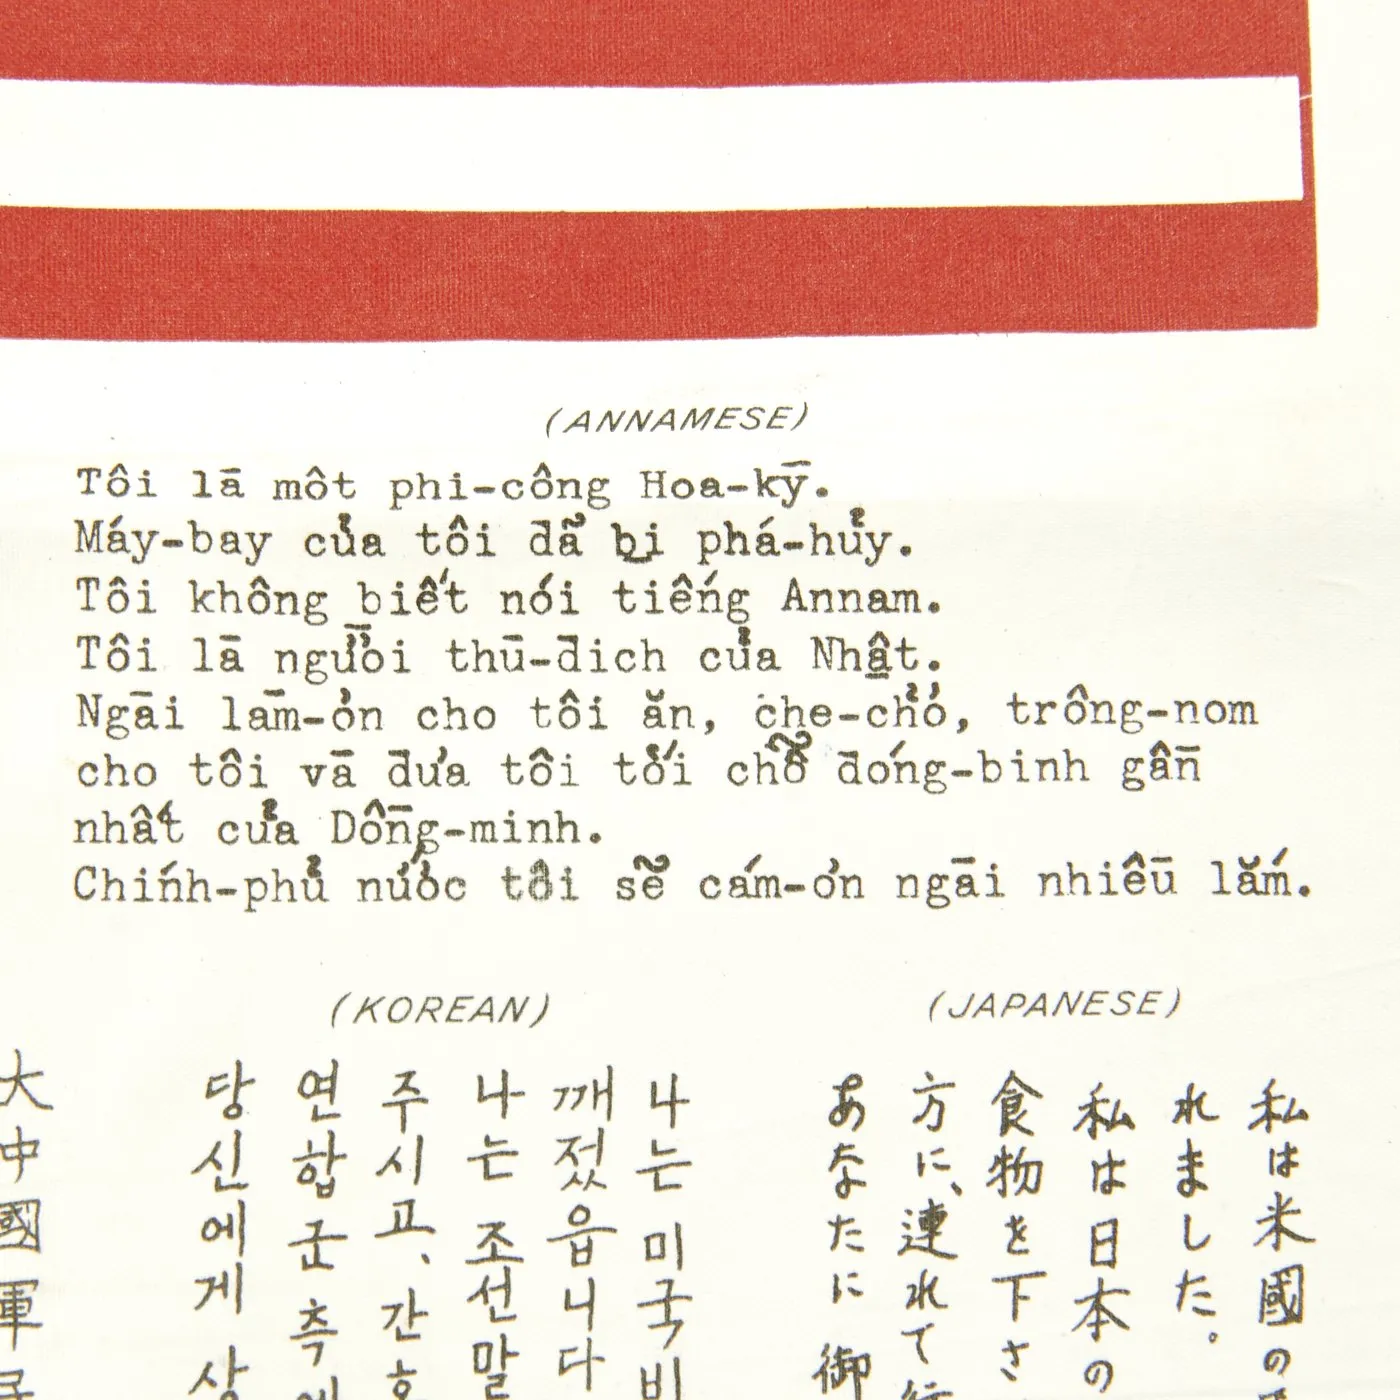 (ANNAMESE)
Tôi lā môt phi-công Hoa-kȳ.
Máy-bay của tôi đã bị phá-hủy.
Tôi không biết nói tiếng Annam.
Tôi lā ngươ̄i thū-đich của Nhật.
Ngāi lām-ơn cho tôi ăn, che-chở, trông-nom
cho tôi vā đưa tôi tới chỗ đóng-binh gâ̄n
nhất của Dô̄ng-minh.
Chính-phủ nước tôi sẽ cám-ơn ngāi nhiê̄u lắm.
(KOREAN)
나는 미국 비
깨젔읍니다
나는 조선말
주시고, 간호
연합군 측에
당신에게 상
大中國軍民
(JAPANESE)
私は米國の
れました。
私は日本の
食物を下さ
方に、連れて
あなたに御